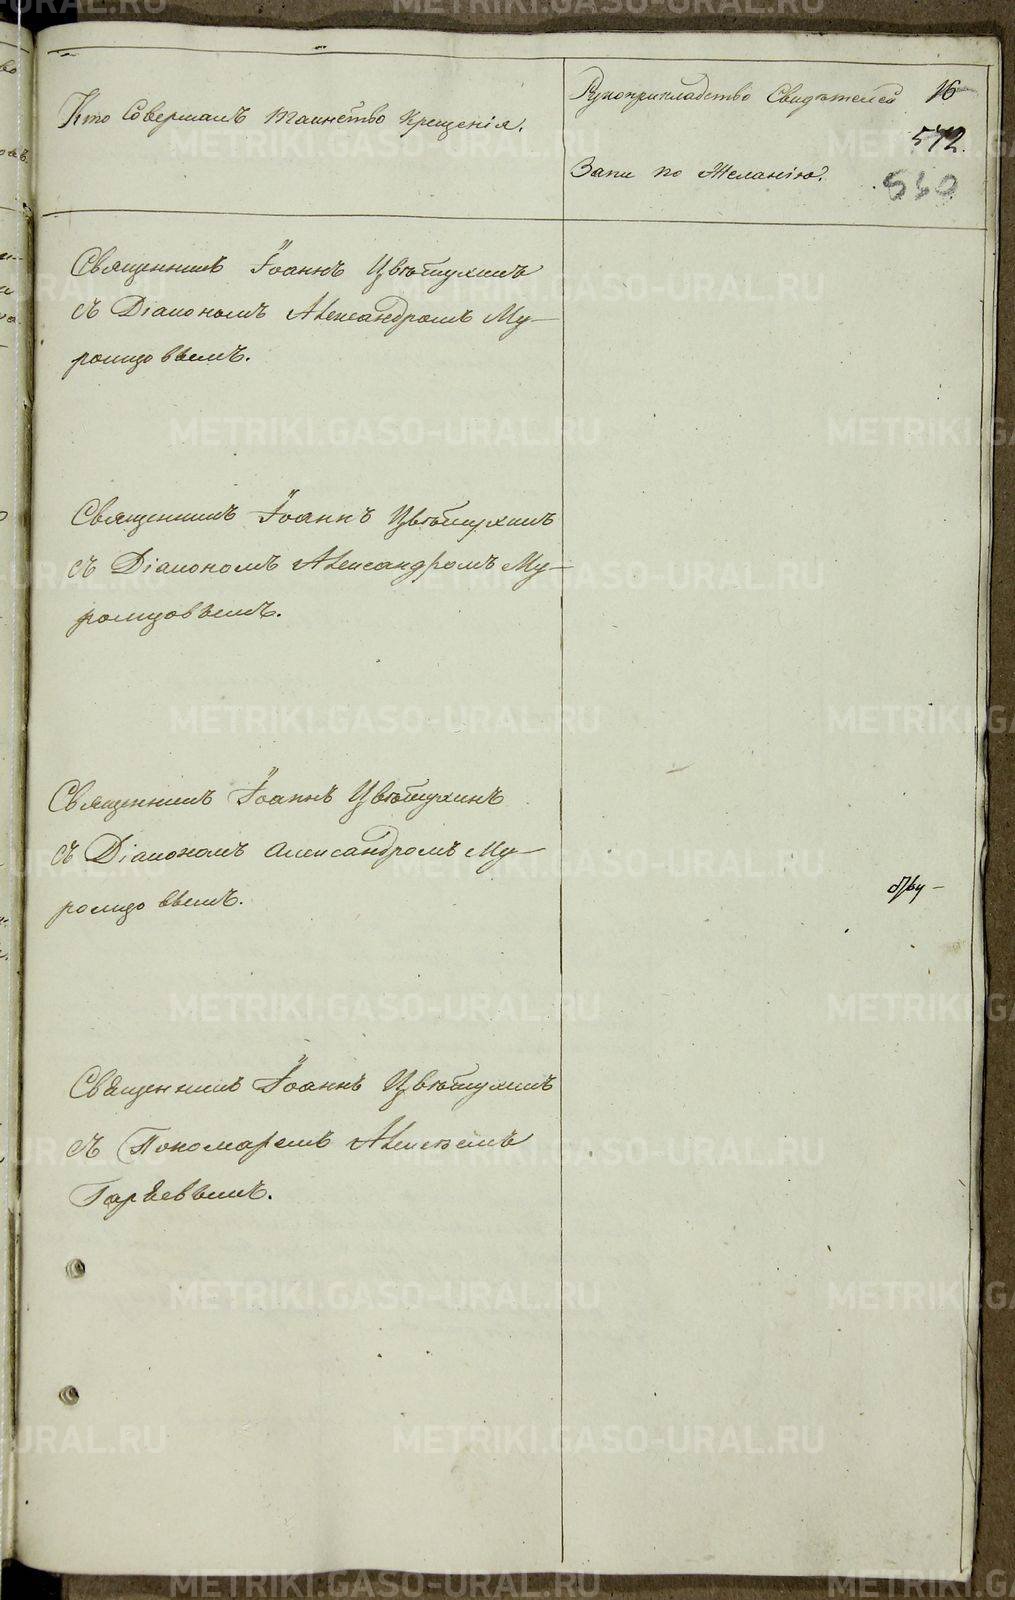 Кто Совершалъ Таинство Крещенія.
Рукоприкладство Свидѣтелей 16
572.
Запи по Желанію.
530
Священникъ Іоаннъ Цвѣтухинъ
съ Діакономъ Александромъ Му-
ромцовымъ.
Священникъ Іоаннъ Цвѣтухинъ
съ Діакономъ Александромъ Му-
ромцовымъ.
Священникъ Іоаннъ Цвѣтухинъ
съ Діакономъ Александромъ Му-
ромцовымъ.
Священникъ Іоаннъ Цвѣтухинъ
съ Пономаремъ Алексѣемъ
Гаряевымъ.
METRIKI.GASO-URAL.RU